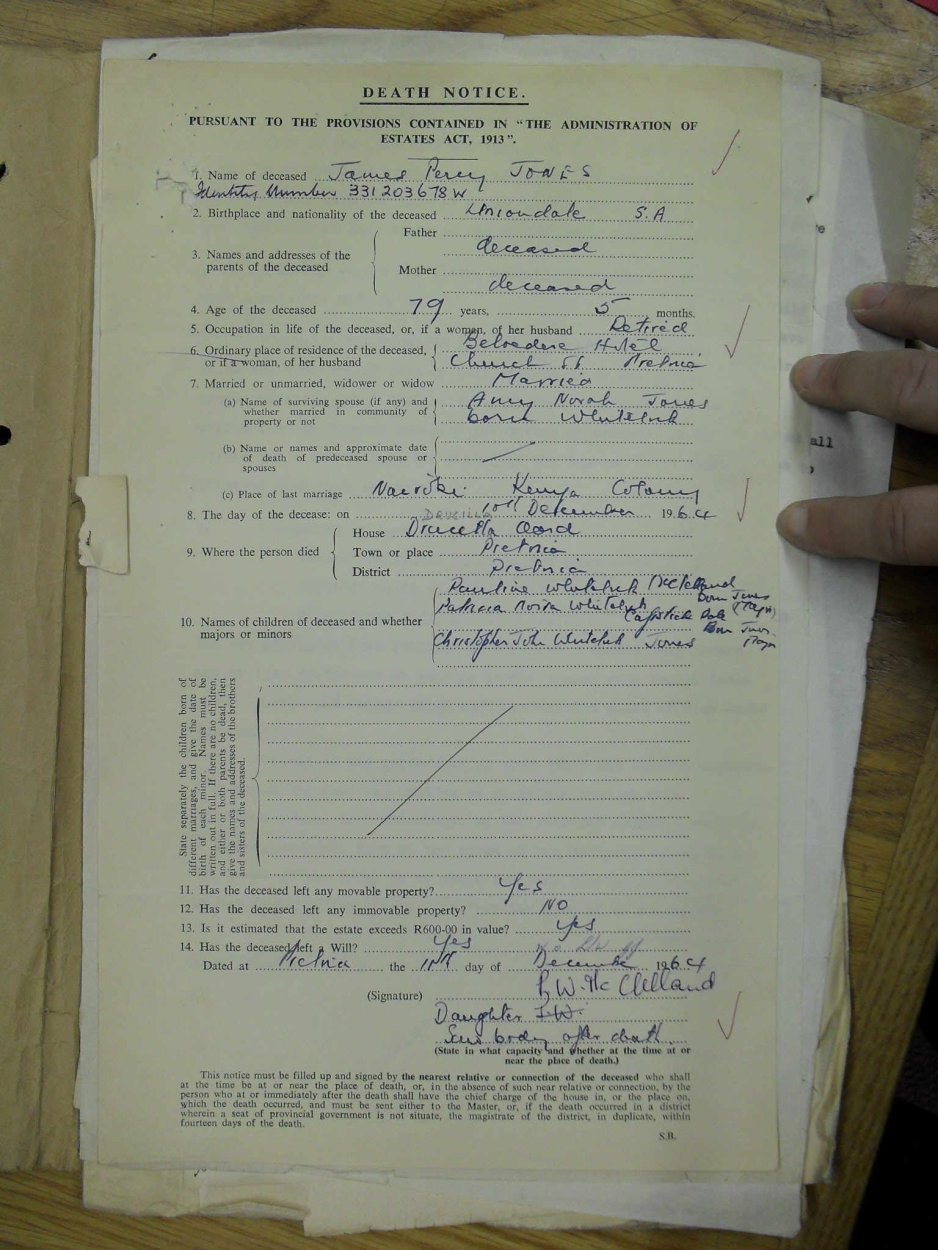 DEATH NOTICE.
PURSUANT TO THE PROVISIONS CONTAINED IN "THE ADMINISTRATION OF
ESTATES ACT, 1913".
1. Name of deceased James Percy JONES
Identity Number 331203678 W
2. Birthplace and nationality of the deceased Uniondale S.A
3. Names and addresses of the
parents of the deceased
Father
deceased
Mother
deceased
4. Age of the deceased 79 years, 5 months.
5. Occupation in life of the deceased, or, if a woman, of her husband Retired
6. Ordinary place of residence of the deceased,
or if a woman, of her husband
Belvedere Hotel
Church St Pretoria
7. Married or unmarried, widower or widow Married
(a) Name of surviving spouse (if any) and
whether married in community of
property or not
Amy Norah Jones
born
(b) Name or names and approximate date
of death of predeceased spouse or
spouses
(c) Place of last marriage Nairobi Kenya Colony
8. The day of the decease: on 10th December 1964
9. Where the person died
House
Town or place Pretoria
District Pretoria
10. Names of children of deceased and whether
majors or minors
Pauline
Born Jones
Patricia
Christopher John Jones
State separately the children born of
different marriages, and give the date of
birth of each minor. Names must be
written out in full. If there are no children,
and either or both parents be dead, then
give the names and addresses of the brothers
and sisters of the deceased.
11. Has the deceased left any movable property? Yes
12. Has the deceased left any immovable property? NO
13. Is it estimated that the estate exceeds R600-00 in value? Yes
14. Has the deceased left a Will? Yes
Dated at Pretoria the day of December 1964
(Signature) P.W. McClelland
Daughter
body after death
(State in what capacity and whether at the time at or
near the place of death.)
This notice must be filled up and signed by the nearest relative or connection of the deceased who shall
at the time be at or near the place of death, or, in the absence of such near relative or connection, by the
person who at or immediately after the death shall have the chief charge of the house in, or the place on,
which the death occurred, and must be sent either to the Master, or, if the death occurred in a district
wherein a seat of provincial government is not situate, the magistrate of the district, in duplicate, within
fourteen days of the death.
S.B.